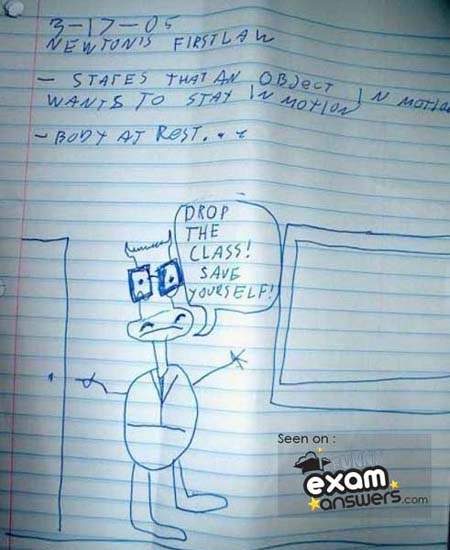 3-17-05
NEWTON'S FIRST LAW
- STATES THAT AN OBJECT IN MOTION
WANTS TO STAY IN MOTION
- BODY AT REST...
DROP
THE
CLASS!
SAVE
YOURSELF!
Seen on :
FUNNY
exam
answers.com